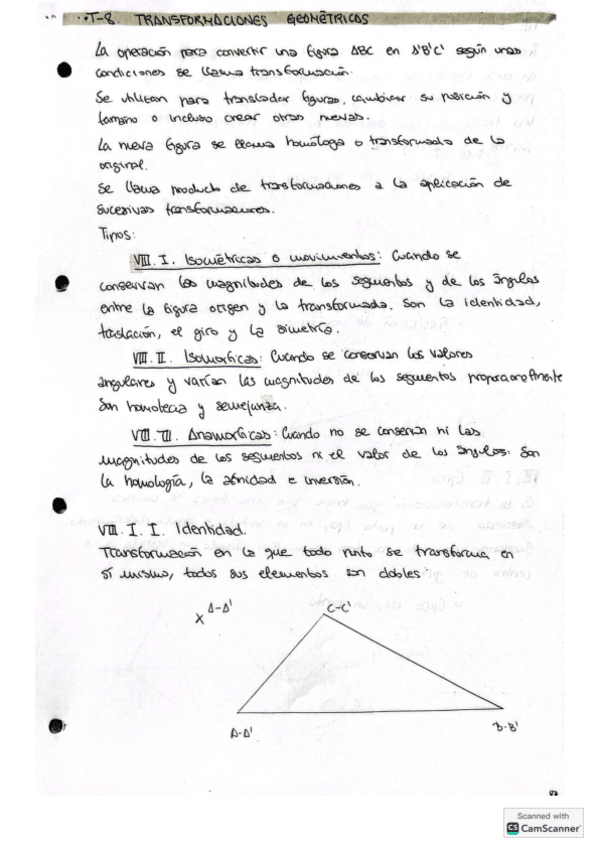 T-8. TRANSFORMACIONES GEOMÉTRICAS
La operación para convertir una figura ABC en A'B'C' según unas
condiciones se llama transformación.
Se utilizan para trasladar figuras, cambiar su posición y
tamaño o incluso crear otras nuevas.
La nueva figura se llama homóloga o transformada de la
original.
Se llama producto de transformaciones a la aplicación de
sucesivas transformaciones.
Tipos:
VIII. I. Isométricas o movimientos: Cuando se
conservan las magnitudes de los segmentos y de los ángulos
entre la figura origen y la transformada. Son la identidad,
traslación, el giro y la simetría.
VIII. II. Isomórficas: Cuando se conservan los valores
angulares y varían las magnitudes de los segmentos proporcionalmente
Son homotecia y semejanza.
VIII. III. Anamórficas: Cuando no se conservan ni las
magnitudes de los segmentos ni el valor de los ángulos. Son
la homología, la afinidad e inversión.
VIII. I. I. Identidad.
Transformación en la que todo punto se transforma en
sí mismo, todos sus elementos son dobles.
x A-A'
C-C'
A-A'
B-B'
Scanned with
CS CamScanner